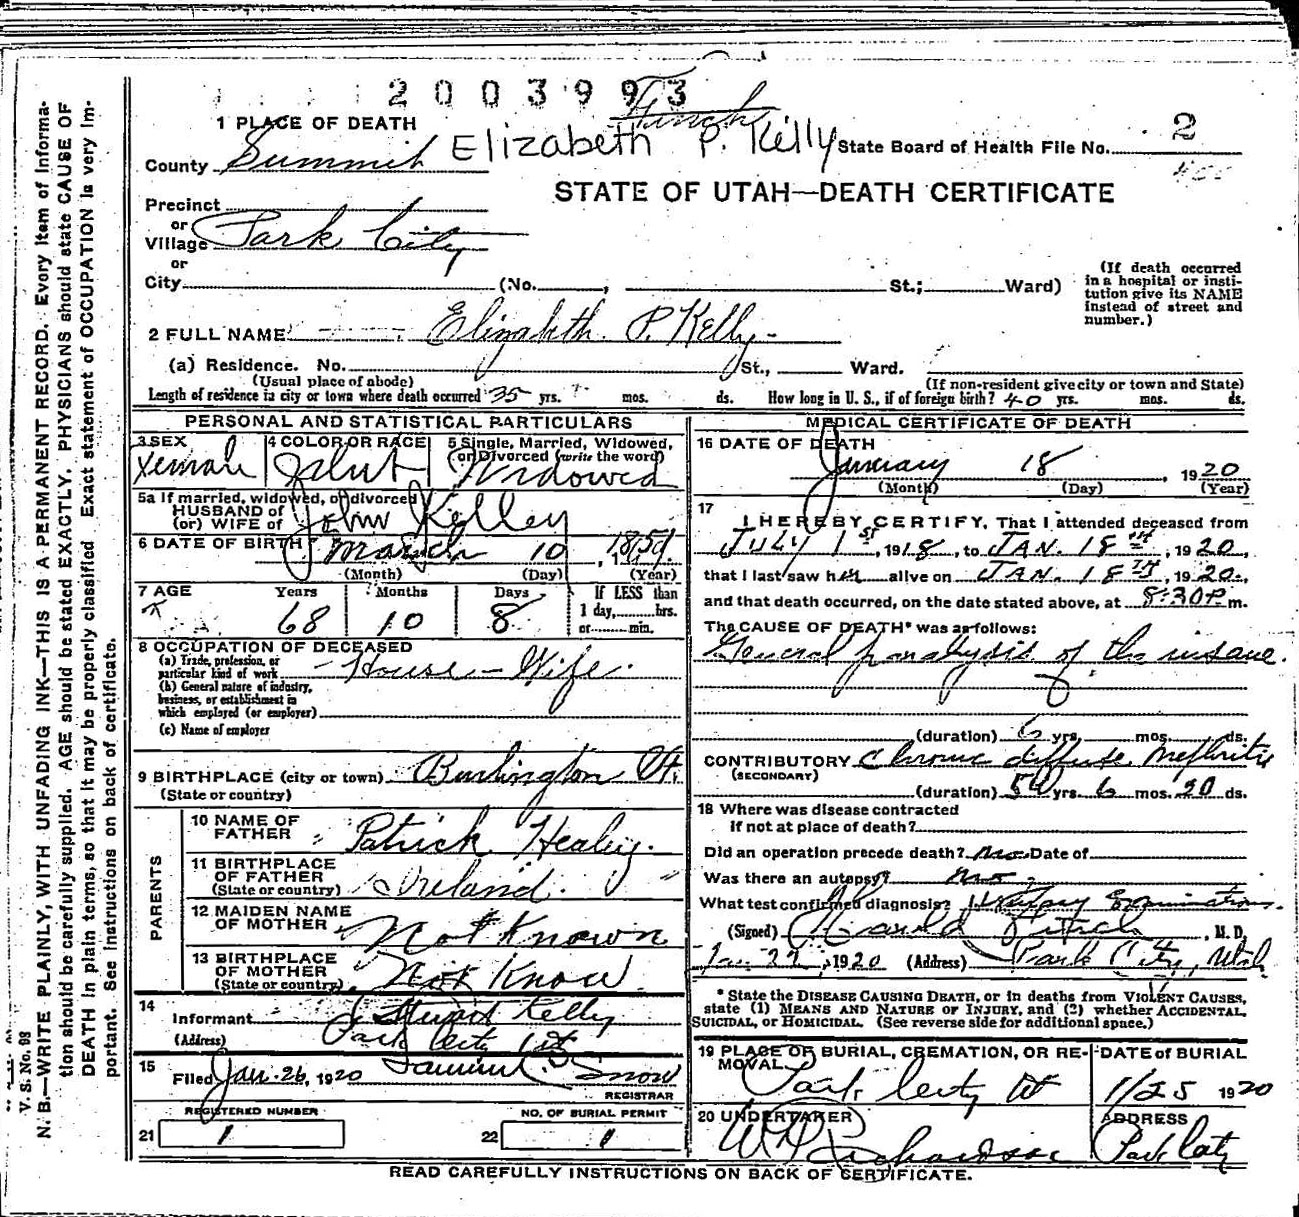 2003993
Finch
1 PLACE OF DEATH
County Summit Elizabeth P. Kelly State Board of Health File No. 2
400
STATE OF UTAH—DEATH CERTIFICATE
Precinct
or
Village Park City
or
City (No. , St.; Ward)
(If death occurred in a hospital or institution give its NAME instead of street and number.)
2 FULL NAME Elizabeth P. Kelly
(a) Residence. No. St., Ward.
(Usual place of abode) (If non-resident give city or town and State)
Length of residence in city or town where death occurred 35 yrs. mos. ds. How long in U. S., if of foreign birth? 40 yrs. mos. ds.
PERSONAL AND STATISTICAL PARTICULARS
3 SEX Female
4 COLOR OR RACE
5 Single, Married, Widowed, or Divorced (write the word) Widowed
5a If married, widowed, or divorced
HUSBAND of
(or) WIFE of John Kelley
6 DATE OF BIRTH March 10
(Month) (Day) (Year)
7 AGE Years Months Days If LESS than
1 day, hrs.
or min.
68 10 8
8 OCCUPATION OF DECEASED
(a) Trade, profession, or particular kind of work House-Wife
(b) General nature of industry, business, or establishment in which employed (or employer)
(c) Name of employer
9 BIRTHPLACE (city or town) Burlington Vt.
(State or country)
PARENTS
10 NAME OF FATHER Patrick
11 BIRTHPLACE OF FATHER (State or country) Ireland.
12 MAIDEN NAME OF MOTHER Not Known
13 BIRTHPLACE OF MOTHER (State or country) Not Know
14
Informant Stuart Kelly
(Address) Park City Ut
15
Filed Jan. 26, 1920 Snow
REGISTRAR
REGISTERED NUMBER NO. OF BURIAL PERMIT
21 1 22 1
MEDICAL CERTIFICATE OF DEATH
16 DATE OF DEATH
January 18 1920
(Month) (Day) (Year)
17
I HEREBY CERTIFY, That I attended deceased from
JULY 1st, 1918, to JAN. 18th, 1920,
that I last saw her alive on JAN. 18th, 1920.,
and that death occurred, on the date stated above, at 8:30 P. m.
The CAUSE OF DEATH* was as follows:
General paralysis of the insane.
(duration) 6 yrs. mos. ds.
CONTRIBUTORY Chronic diffuse Nephritis
(SECONDARY)
(duration) yrs. 6 mos. 20 ds.
18 Where was disease contracted
if not at place of death?
Did an operation precede death? No Date of
Was there an autopsy? No.
What test confirmed diagnosis? Examinations.
(Signed) , M. D.
Jan 22, 1920 (Address) Park City, Utah
* State the DISEASE CAUSING DEATH, or in deaths from VIOLENT CAUSES,
state (1) MEANS AND NATURE OF INJURY, and (2) whether ACCIDENTAL,
SUICIDAL, or HOMICIDAL. (See reverse side for additional space.)
19 PLACE OF BURIAL, CREMATION, OR REMOVAL Park City Ut
DATE of BURIAL 1/25 1920
20 UNDERTAKER W Richardson
ADDRESS Park City
READ CAREFULLY INSTRUCTIONS ON BACK OF CERTIFICATE.
V. S. No. 98
N. B.—WRITE PLAINLY, WITH UNFADING INK—THIS IS A PERMANENT RECORD. Every item of Informa-
tion should be carefully supplied. AGE should be stated EXACTLY. PHYSICIANS should state CAUSE OF
DEATH in plain terms, so that it may be properly classified. Exact statement of OCCUPATION is very Im-
portant. See instructions on back of certificate.